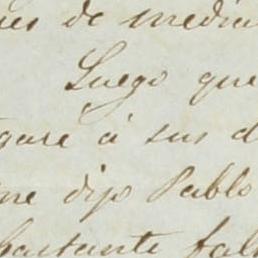 de media
Luego que
á sus d
me dijo Pablo
bastante fal